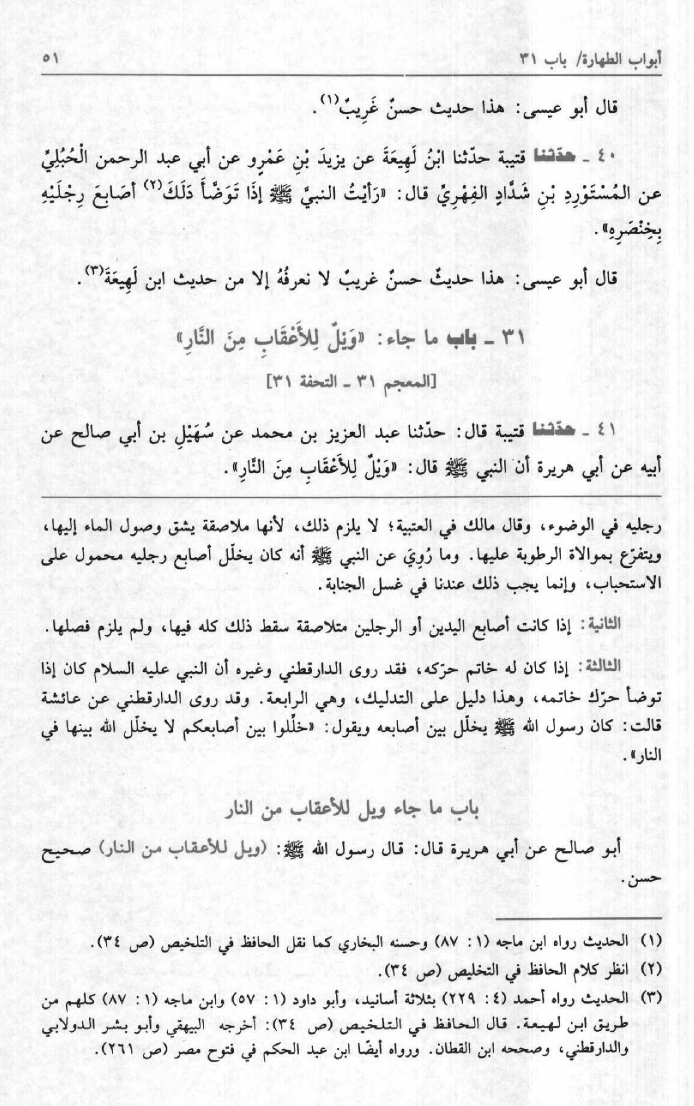 أبواب الطهارة/ باب ٣١ ٥١
قال أبو عيسى: هذا حديث حسنٌ غَرِيبٌ(١).
٤٠ ـ حدّثنا قتيبة حدّثنا ابْنُ لَهِيعَةَ عن يزيدَ بْنِ عَمْرٍو عن أبي عبد الرحمن الْحُبُلِيِّ
عن المُسْتَوْرِدِ بْنِ شَدَّادٍ الفِهْرِيِّ قال: «رَأَيْتُ النبيَّ ﷺ إذَا تَوَضَّأَ دَلَكَ(٢) أصَابِعَ رِجْلَيْهِ
بِخِنْصَرِهِ».
قال أبو عيسى: هذا حديثٌ حسنٌ غريبٌ لا نعرفُهُ إلا من حديث ابن لَهِيعَةَ(٣).
٣١ ـ باب ما جاء: «وَيْلٌ لِلأَعْقَابِ مِنَ النَّارِ»
[المعجم ٣١ ـ التحفة ٣١]
٤١ ـ حدّثنا قتيبة قال: حدّثنا عبد العزيز بن محمد عن سُهَيْلِ بن أبي صالح عن
أبيه عن أبي هريرة أن النبي ﷺ قال: «وَيْلٌ لِلأَعْقَابِ مِنَ النَّارِ».
رجليه في الوضوء، وقال مالك في العتبية؛ لا يلزم ذلك، لأنها ملاصقة يشق وصول الماء إليها،
ويتفرّع بموالاة الرطوبة عليها. وما رُوِيَ عن النبي ﷺ أنه كان يخلّل أصابع رجليه محمول على
الاستحباب، وإنما يجب ذلك عندنا في غسل الجنابة.
الثانية: إذا كانت أصابع اليدين أو الرجلين متلاصقة سقط ذلك كله فيها، ولم يلزم فصلها.
الثالثة: إذا كان له خاتم حرّكه، فقد روى الدارقطني وغيره أن النبي عليه السلام كان إذا
توضأ حرّك خاتمه، وهذا دليل على التدليك، وهي الرابعة. وقد روى الدارقطني عن عائشة
قالت: كان رسول الله ﷺ يخلّل بين أصابعه ويقول: «خلّلوا بين أصابعكم لا يخلّل الله بينها في
النار».
باب ما جاء ويل للأعقاب من النار
أبو صالح عن أبي هريرة قال: قال رسول الله ﷺ: (ويل للأعقاب من النار) صحيح
حسن.
(١) الحديث رواه ابن ماجه (١: ٨٧) وحسنه البخاري كما نقل الحافظ في التلخيص (ص ٣٤).
(٢) انظر كلام الحافظ في التخليص (ص ٣٤).
(٣) الحديث رواه أحمد (٤: ٢٢٩) بثلاثة أسانيد، وأبو داود (١: ٥٧) وابن ماجه (١: ٨٧) كلهم من
طريق ابن لهيعة. قال الحافظ في التلخيص (ص ٣٤): أخرجه البيهقي وأبو بشر الدولابي
والدارقطني، وصححه ابن القطان. ورواه أيضًا ابن عبد الحكم في فتوح مصر (ص ٢٦١).